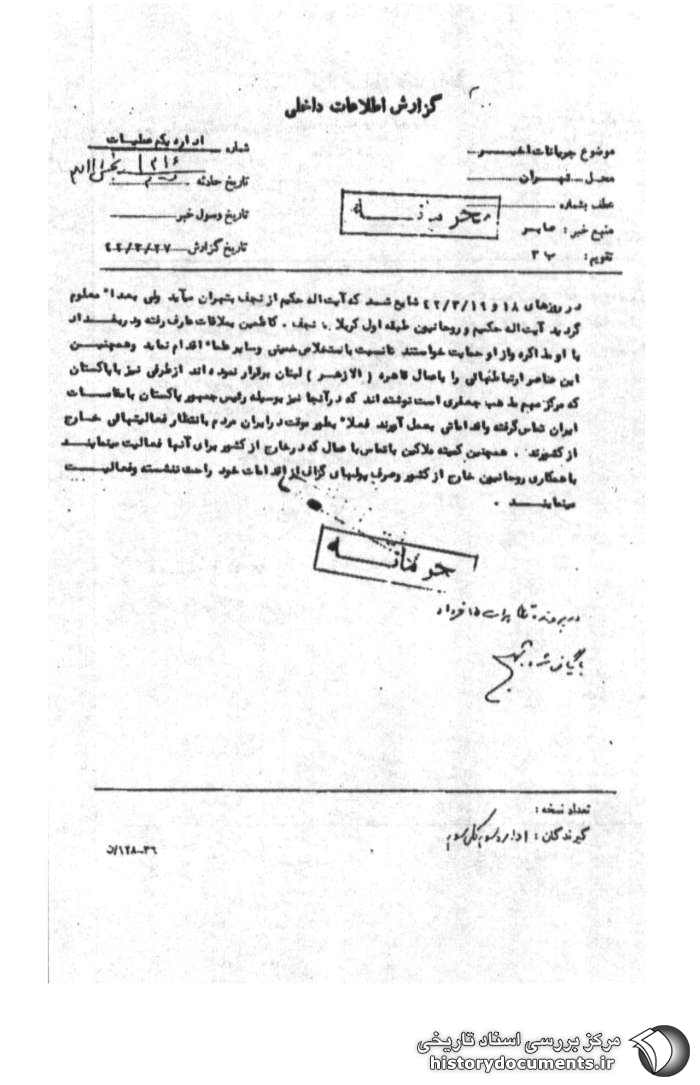 گزارش اطلاعات داخلی
موضوع جریانات اخیر
محل تهران
عطف بشماره
منبع خبر: صابر
تقویم: ب ۳
شماره اداره یکم عملیات
۱۲۱۶
تاریخ حادثه
تاریخ وصول خبر
تاریخ گزارش ۴۲/۳/۲۷
محرمانه
در روزهای ۱۸ و ۴۲/۳/۱۹ شایع شد که آیت اله حکیم از نجف بتهران میآید ولی بعداً معلوم
گردید آیت اله حکیم و روحانیون طبقه اول کربلا، نجف، کاظمین بملاقات عارف رفته و در بغداد
با او مذاکره و از او حمایت خواستند تا نسبت باستخلاص خمینی و سایر علماء اقدام نماید و همچنین
این عناصر ارتباطهائی را باعمال قاهره (الازهر) لبنان برقرار نموده اند از طرفی نیز با پاکستان
که مرکز مهم مذهب جعفری است نوشته اند که در آنجا نیز بوسیله رئیس جمهور پاکستان با مقامات
ایران تماس گرفته و اقداماتی بعمل آورند فعلاً بطور موقت در ایران مردم بانتظار فعالیتهائی خارج
از کشورند. همچنین کمیته ملاکین با تماس با عمال که در خارج از کشور برای آنها فعالیت مینمایند
با همکاری روحانیون خارج از کشور و صرف پولهای گزاف از اقدامات خود راحت ننشسته و فعالیت
مینمایند.
محرمانه
در پرونده تظاهرات ۱۵ خرداد
بایگانی شود
تعداد نسخه:
گیرندگان:
۳۶-۱۲۸/ن
مرکز بررسی اسناد تاریخی
historydocuments.ir